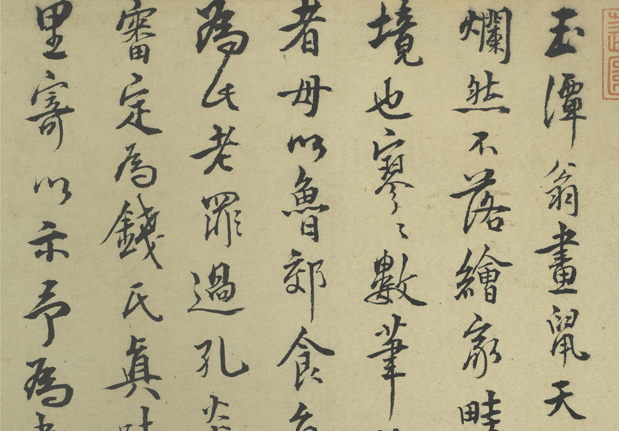 玉潭翁畫鼠天
爛然不落繪家畦
境也寥〻數筆
者毋以魯郊食
為氏老罪過孔
審定為錢氏真
里寄以示予為